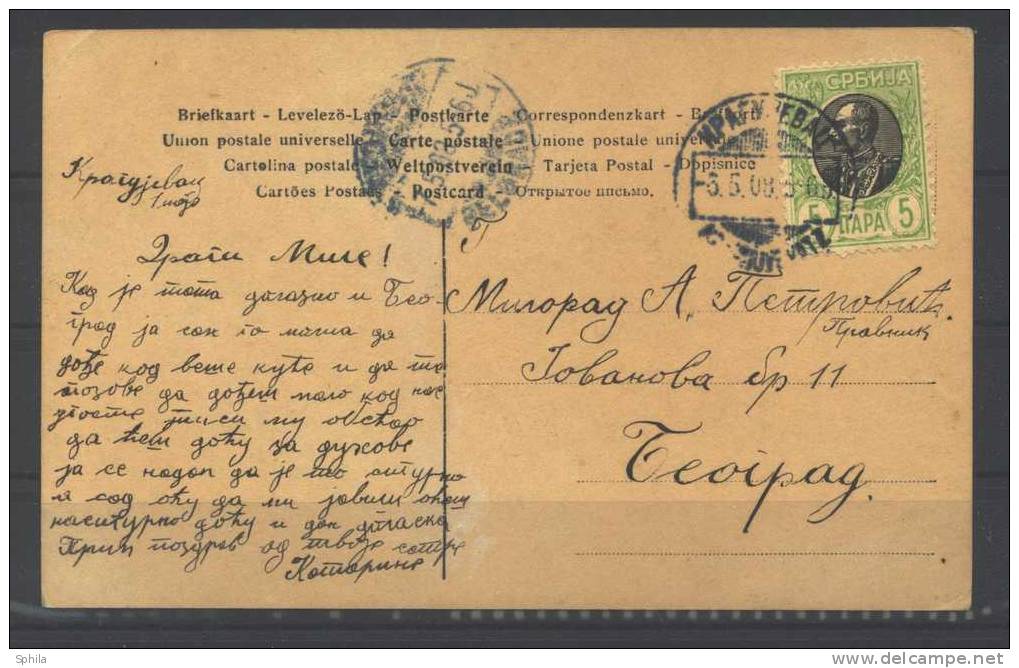 Briefkaart - Levelezö-Lap Postkarte - Correspondenzkart - 
Union postale universelle Carte postale Unione postale univer
Cartolina postale Weltpostverein Tarjeta Postal - Dopisnice
Cartões Postaes Postcard - Открытое письмо.
СРБИЈА
5 ПАРА 5
5.5.08.
Крагујевац
Драги Миле!
Кад је тата долазио и Бео-
град ја сам
дође код ваше куће и да те
позове да дођеш мало код нас
у госте пиши му
да ћеш доћу за духове
ја се надам да је то сигурно
а сад оћу да ми јавиш оћеш
насигурно доћу и дан доласка
Прими поздрав од твоје сестре
Катарине
Милорад А. Петровић
Правник
Јованова бр 11
Београд.
Sphila
www.delcampe.net